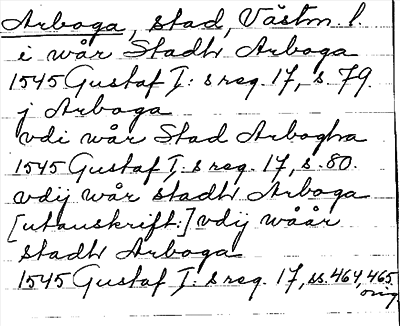 Arboga, stad, Västm. l.
i wår Stadh Arboga
1545 Gustaf I: s reg. 17, s. 79.
j Arboga
vdi wår Stad Arbogha
1545 Gustaf I: s reg. 17, s. 80.
vdij wår stadh Arboga
[utanskrift:] vdij wåår
stadh Arboga
1545 Gustaf I: s reg. 17, ss. 464, 465.
orig.